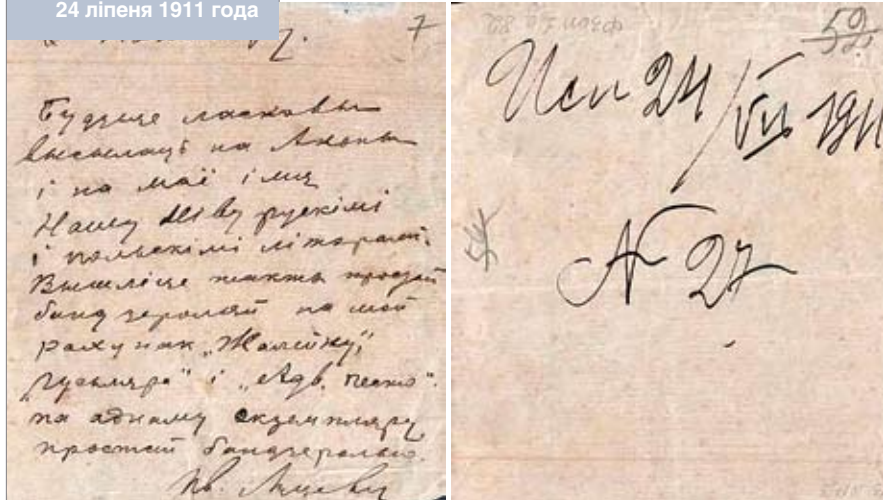 24 ліпеня 1911 года
7
Будзьце ласковы
высылаць на Акопы
і на маё імя
Нашу Ніву рускімі
і польскімі літарамі.
Вышліце такжа простай
бандэроляй на мой
рахунак „Жалейку",
„Гусьляра" і „Адв. песню"
па аднаму экземпляру
простай бандэроляю.
Ив. Луцевич
52
Исп 24/VII 1911
N 27